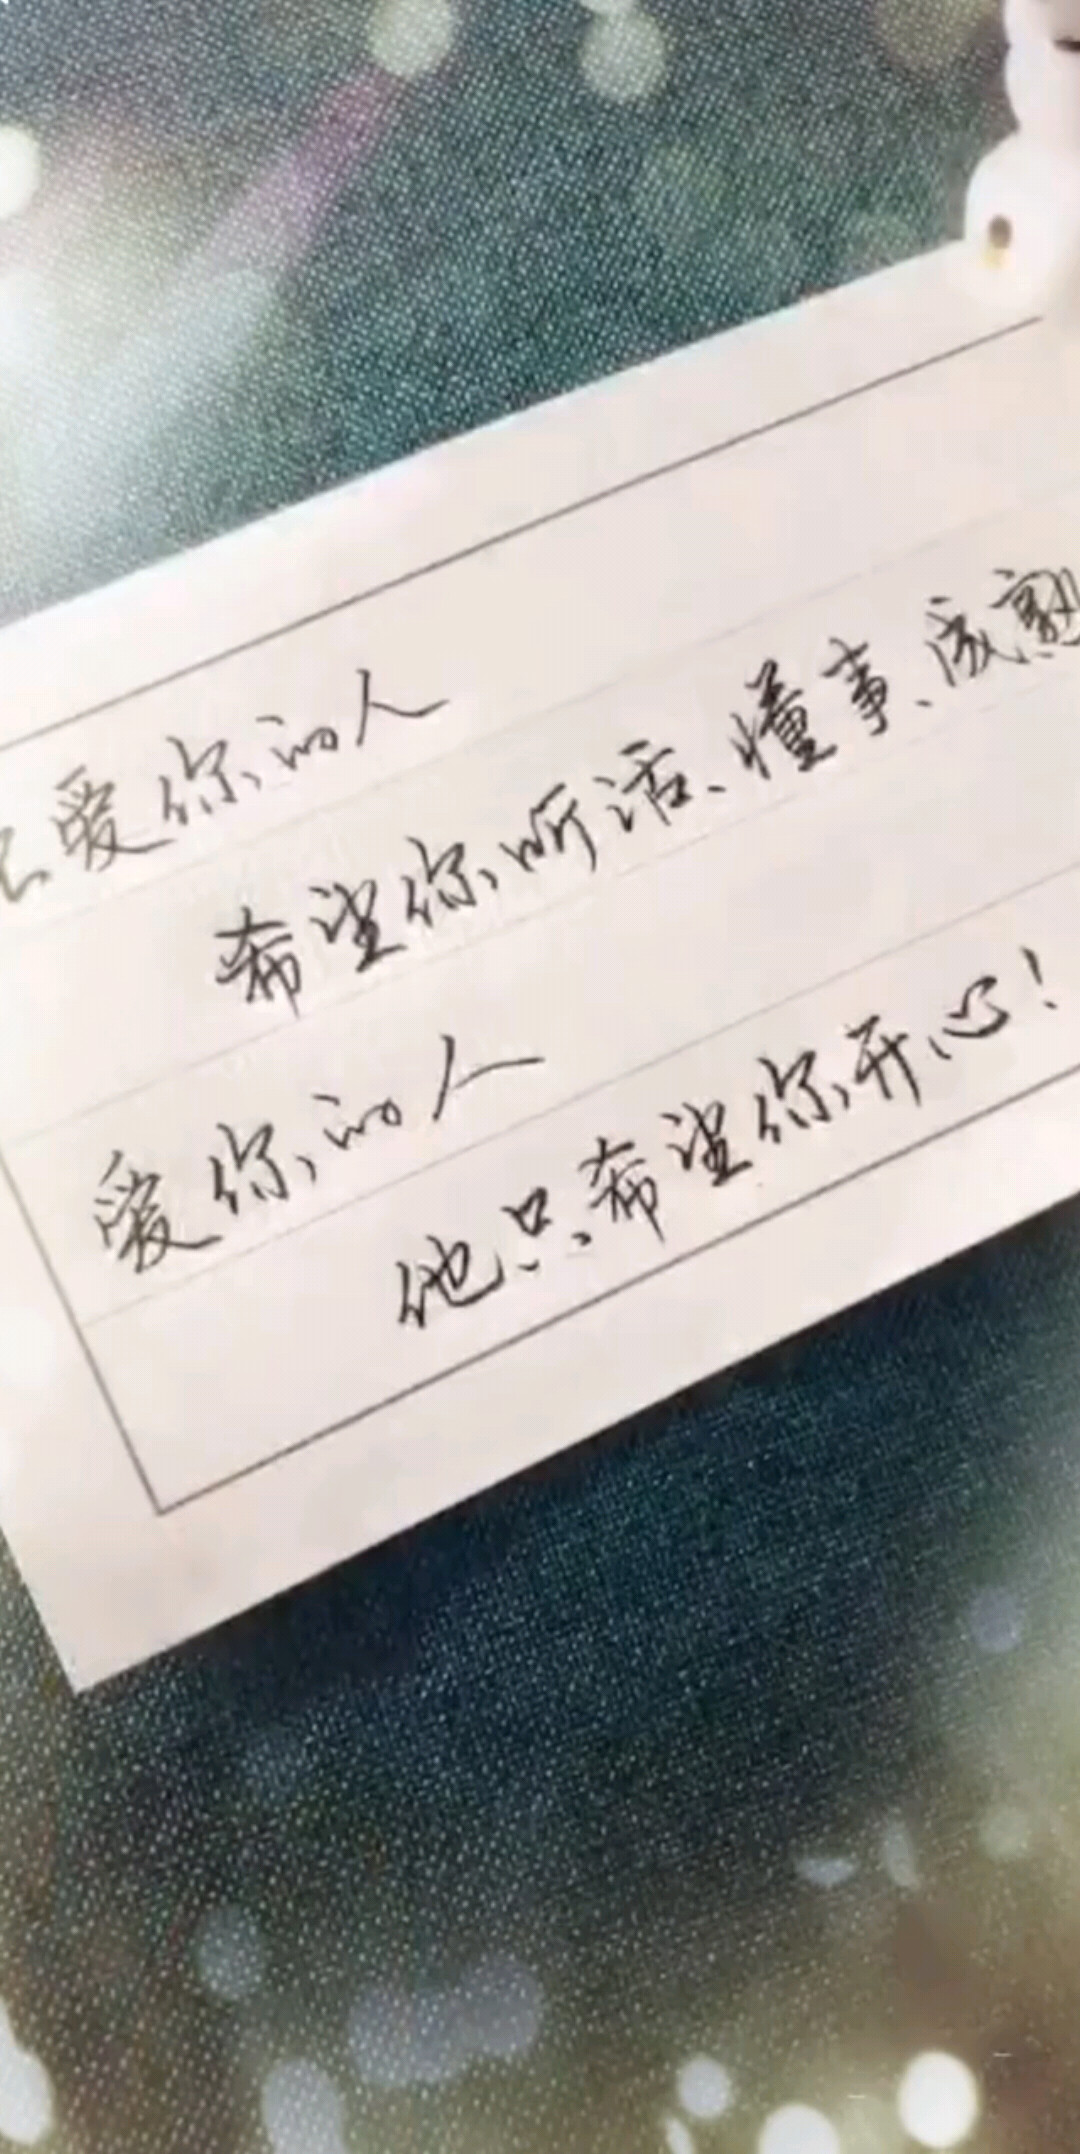 爱你的人
希望你听话、懂事、成熟
爱你的人
他只希望你开心！